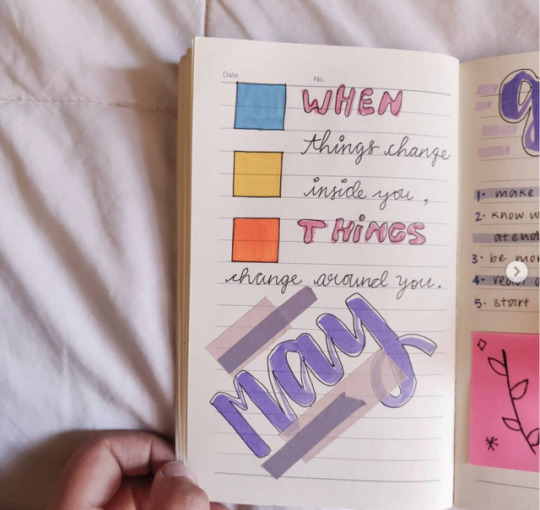 Date
No.
WHEN
things change
inside you,
THINGS
change around you.
May
g
1. make
2. know w
atend
3. be mo
4.
5. start